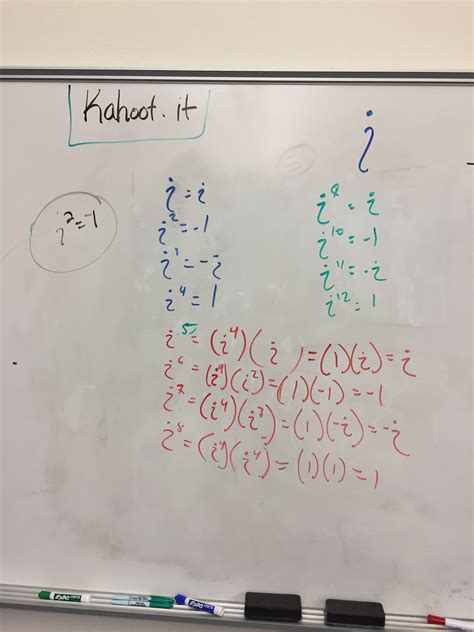 Kahoot.it
i
i² = -1
i = i
i² = -1
i³ = -i
i⁴ = 1
i⁹ = i
i¹⁰ = -1
i¹¹ = -i
i¹² = 1
i⁵ = (i⁴)(i) = (1)(i) = i
i⁶ = (i⁴)(i²) = (1)(-1) = -1
i⁷ = (i⁴)(i³) = (1)(-i) = -i
i⁸ = (i⁴)(i⁴) = (1)(1) = 1
EXPO
EXPO